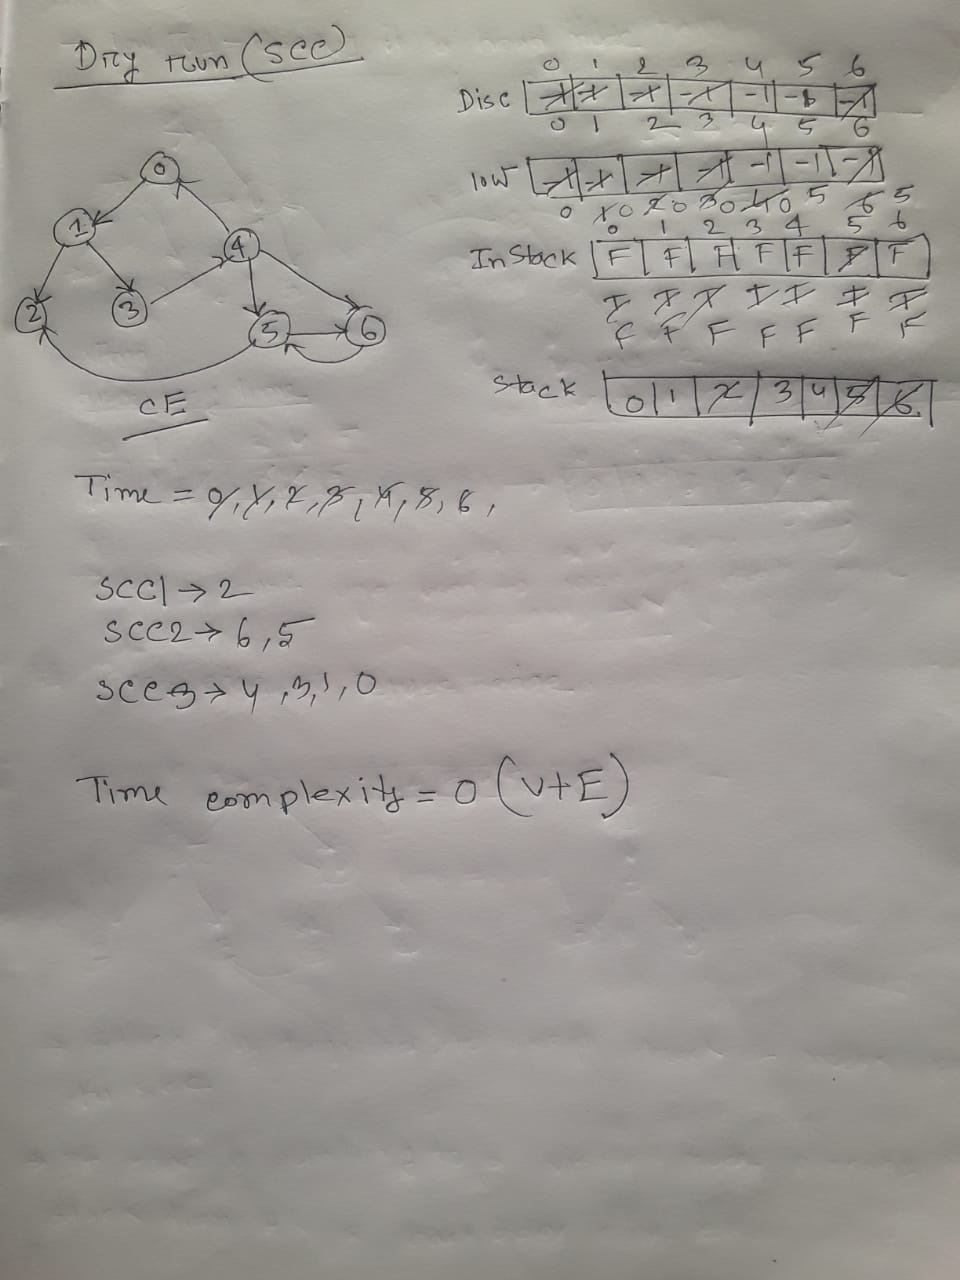 Dry run (SCC)
0 1 2 3 4 5 6
Disc -1 -1 -1 -1 -1 -1 -1
0 1 2 3 4 5 6
low -1 -1 -1 -1 -1 -1 -1
0 1 0 2 0 3 0 4 0 5 6 5
0 1 2 3 4 5 6
InStack F F F F F F F
T T T T T T T
F F F F F F F
Stack 0 1 2 3 4 5 6
0
1
4
2
3
5
6
CE
Time = 0, 1, 2, 3, 4, 5, 6,
SCC1 → 2
SCC2 → 6, 5
SCC3 → 4, 3, 1, 0
Time complexity = O (V+E)